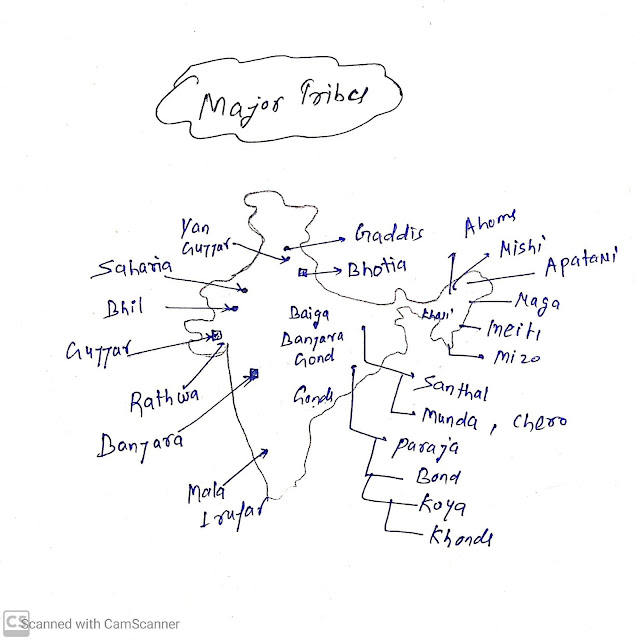 Major Tribes
Van
Gujjar
Gaddis
Bhotia
Ahoms
Nishi
Apatani
Saharia
Bhil
Gujjar
Rathwa
Banjara
Baiga
Banjara
Gond
Gonds
Khasi
Naga
meiti
mizo
Santhal
Munda, Chero
Paraja
Bond
Koya
Khonds
Mala
Irular
CS
Scanned with CamScanner